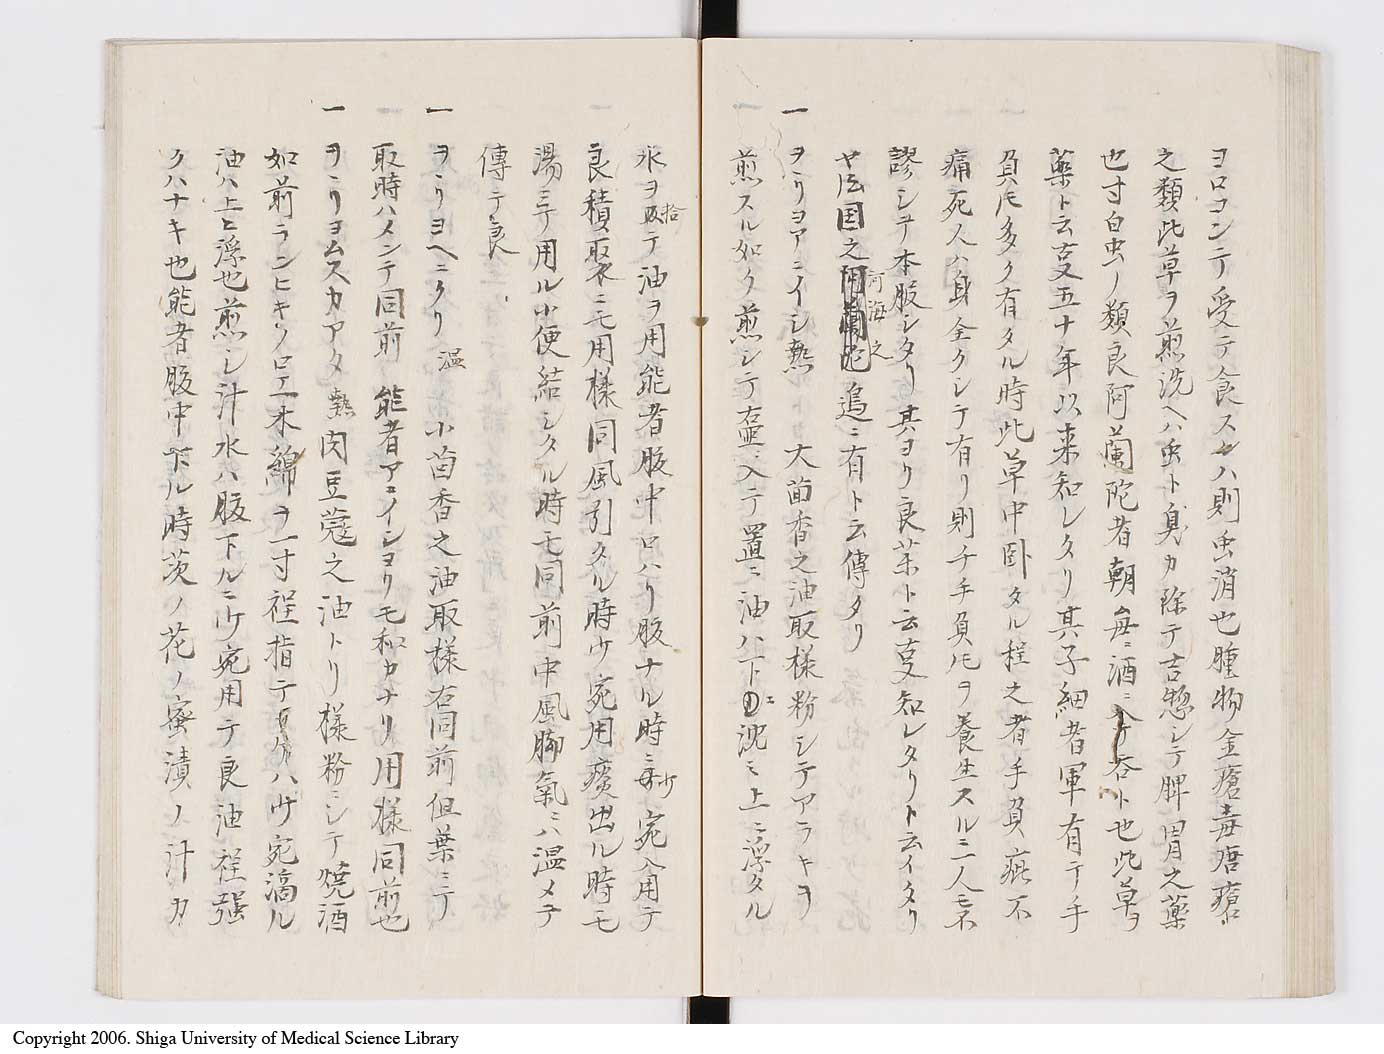 ヨロコンテ受テ食スレハ則虫消也腫物金瘡毒唐瘡
之類此草ヲ煎洗ヘハ虫ト臭カ除テ吉惣シテ脾胃之薬
也寸白虫ノ類良阿蘭陀者朝毎ニ酒ニ入テ呑ト也此草ヲ
薬ト云叓五十年以来知レタリ其子細者軍有テ手
負疵多ク有タル時此草中臥タル程之者手負疵不
痛死人ハ身全クシテ有リ則チ手負疵ヲ養生スルニ一人モ不
謬シテ本服シタリ其ヨリ良薬ト云叓知レタリト云イタリ
ヤ国之河海之辺ニ有ト云傳タリ
一 ヲリヨアニイシ熱 大茴香之油取様粉シテアラキヲ
煎スル如ク煎シテ壷ニ入テ置ニ油ハ下エ沈ミ上ニ浮タル
水ヲ拾テ油ヲ用能者腹中ロハリ腹ナル時ニ少宛入用テ
良積聚ニモ用様同風引タル時少宛用痰出ル時モ
湯ニテ用ル小便結シタル時モ同前中風脚氣ニハ温メテ
傳テ良
一 ヲリヨヘニクリ温 小茴香之油取様右同前但葉ニテ
取時ハメンテ同前 能者アニイシヨリモ和カナリ用様同前也
一 ヲリヨムスカアタ熱 肉豆蔲之油トリ様粉ニシテ焼酒
如前ランヒキノ口エ木綿ヲ一寸程指テ ハ少宛滴ル
油ハ上ヒ浮也煎シ汁水ハ腹下ルニ少宛用テ良油程強
クハナキ也能者腹中下ル時茨ノ花ノ蜜漬ノ汁カ
Copyright 2006. Shiga University of Medical Science Library